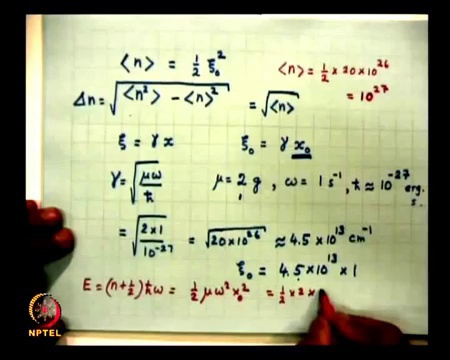 ⟨n⟩ = ½ ξ₀²
⟨n⟩ = ½ × 20 × 10²⁶
= 10²⁷
Δn = √(⟨n²⟩ − ⟨n⟩²) = √⟨n⟩
ξ = γ x ξ₀ = γ x₀
γ = √(μω/ħ) μ = 2 g, ω = 1 s⁻¹, ħ ≈ 10⁻²⁷ erg. s.
= √(2 × 1/10⁻²⁷) = √(20 × 10²⁶) ≈ 4.5 × 10¹³ cm⁻¹
ξ₀ = 4.5 × 10¹³ × 1
E = (n + ½) ħω = ½ μ ω² x₀² = ½ × 2 ×
NPTEL